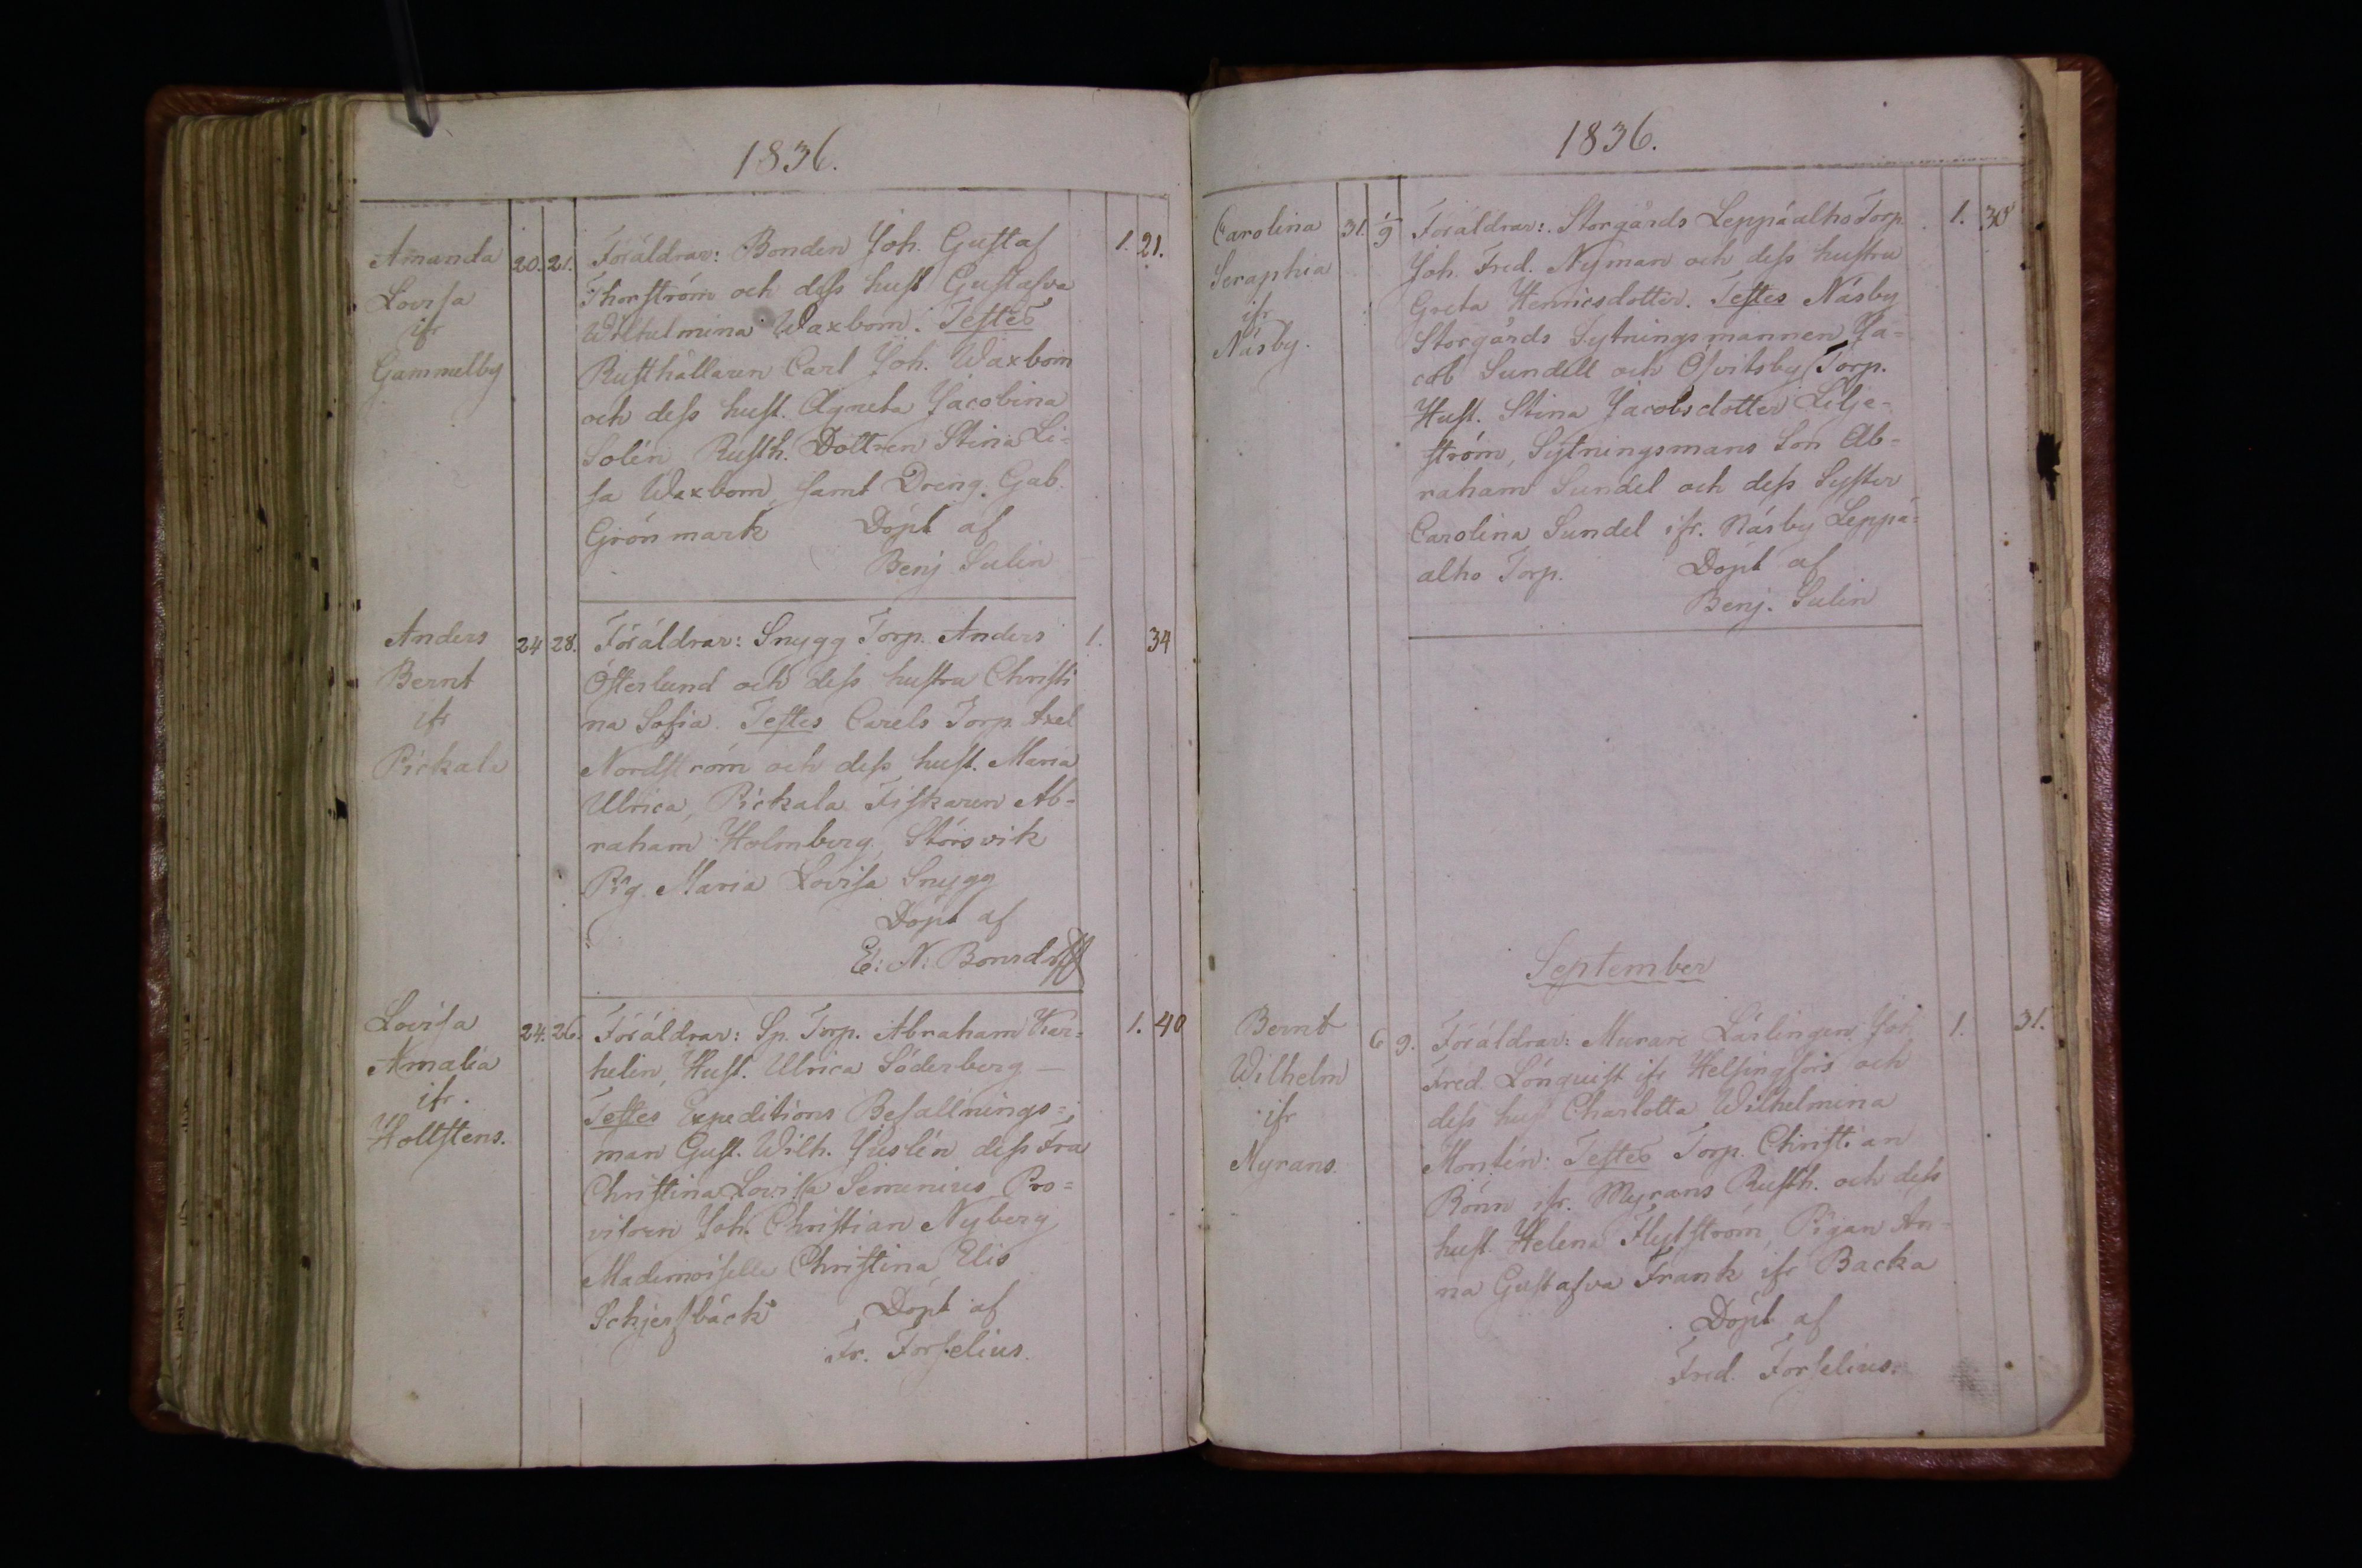 1836.
Amanda
Lovisa
ifr
Gammelby
20. 21.
Föräldrar: Bonden Joh. Gustaf
Thorström och dess hust Gustafva
Wilhelmina Waxbom. Testes
Rusthållaren Carl Joh. Waxbom
och dess hust. Agneta Jacobina
Solén, Rusth. Dottren Stina Li-
sa Waxbom, samt Dreng. Gab.
Grönmark Döpt af
Benj Sulin
1. 21.
Anders
Bernt
ifr
Pickala
24 28.
Föräldrar: Snygg Torp. Anders
Österlund och dess hustru Christi
na Sofia. Testes Carels Torp. Axel
Nordström och dess hust. Maria
Ulrica, Pickala Fiskaren Ab-
raham Holmberg, Störsvik
Pig. Maria Lovisa Snygg
Döpt af
E: N: Bonsdorff
1. 34
Lovisa
Amalia
ifr.
Holstens.
24. 26.
Föräldrar: Sp. Torp. Abraham Kar-
helin, Hust. Ulrica Söderberg —
Testes Expeditions Befallnings-
man Gust. Wilh. Juslén dess Fru
Christina Lovisa Simenius, Pro-
visorn Joh. Christian Nyberg
Mademoiselle Christina Elis
Schjerfbäck Döpt af
Fr. Forselius.
1. 40
1836.
Carolina
Seraphia
ifr
Näsby.
31. 1/9
Föräldrar: Storgårds Leppäalho Torp.
Joh. Fred. Nyman och dess hustru
Greta Henricsdotter. Testes Näsby
Storgårds Sytningsmannen Ja-
cob Sundell och Ofvitsby Torp.
Hust. Stina Jacobsdotter Lilje-
ström, Sytningsmans Son Ab-
raham Sundel och dess Syster
Carolina Sundel ifr. Näsby Leppä-
alho Torp. Döpt af
Benj. Sulin
1.
September
Bernt
Wilhelm
ifr
Myrans.
6 9.
Föräldrar: Murare Lärlingen Joh
Fred. Lönquist ifr Helsingfors och
dess hust Charlotta Wilhelmina
Montin: Testes Torp. Christian
Rönn ifr. Myrans Rusth. och dess
hust. Helena Flytström, Pigan An-
na Gustafva Frank ifr Backa
Döpt af
Fred. Forselius.
1. 31.